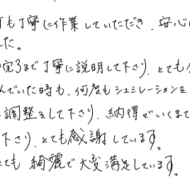 も丁寧に作業していただき、安心
した。
まで丁寧に説明して下さり、とても
んでいた時も、何度もシュミレーションを
調整をして下さり、納得でいくまで
下さり、とても感謝しています。
ても綺麗で大変満足しています。